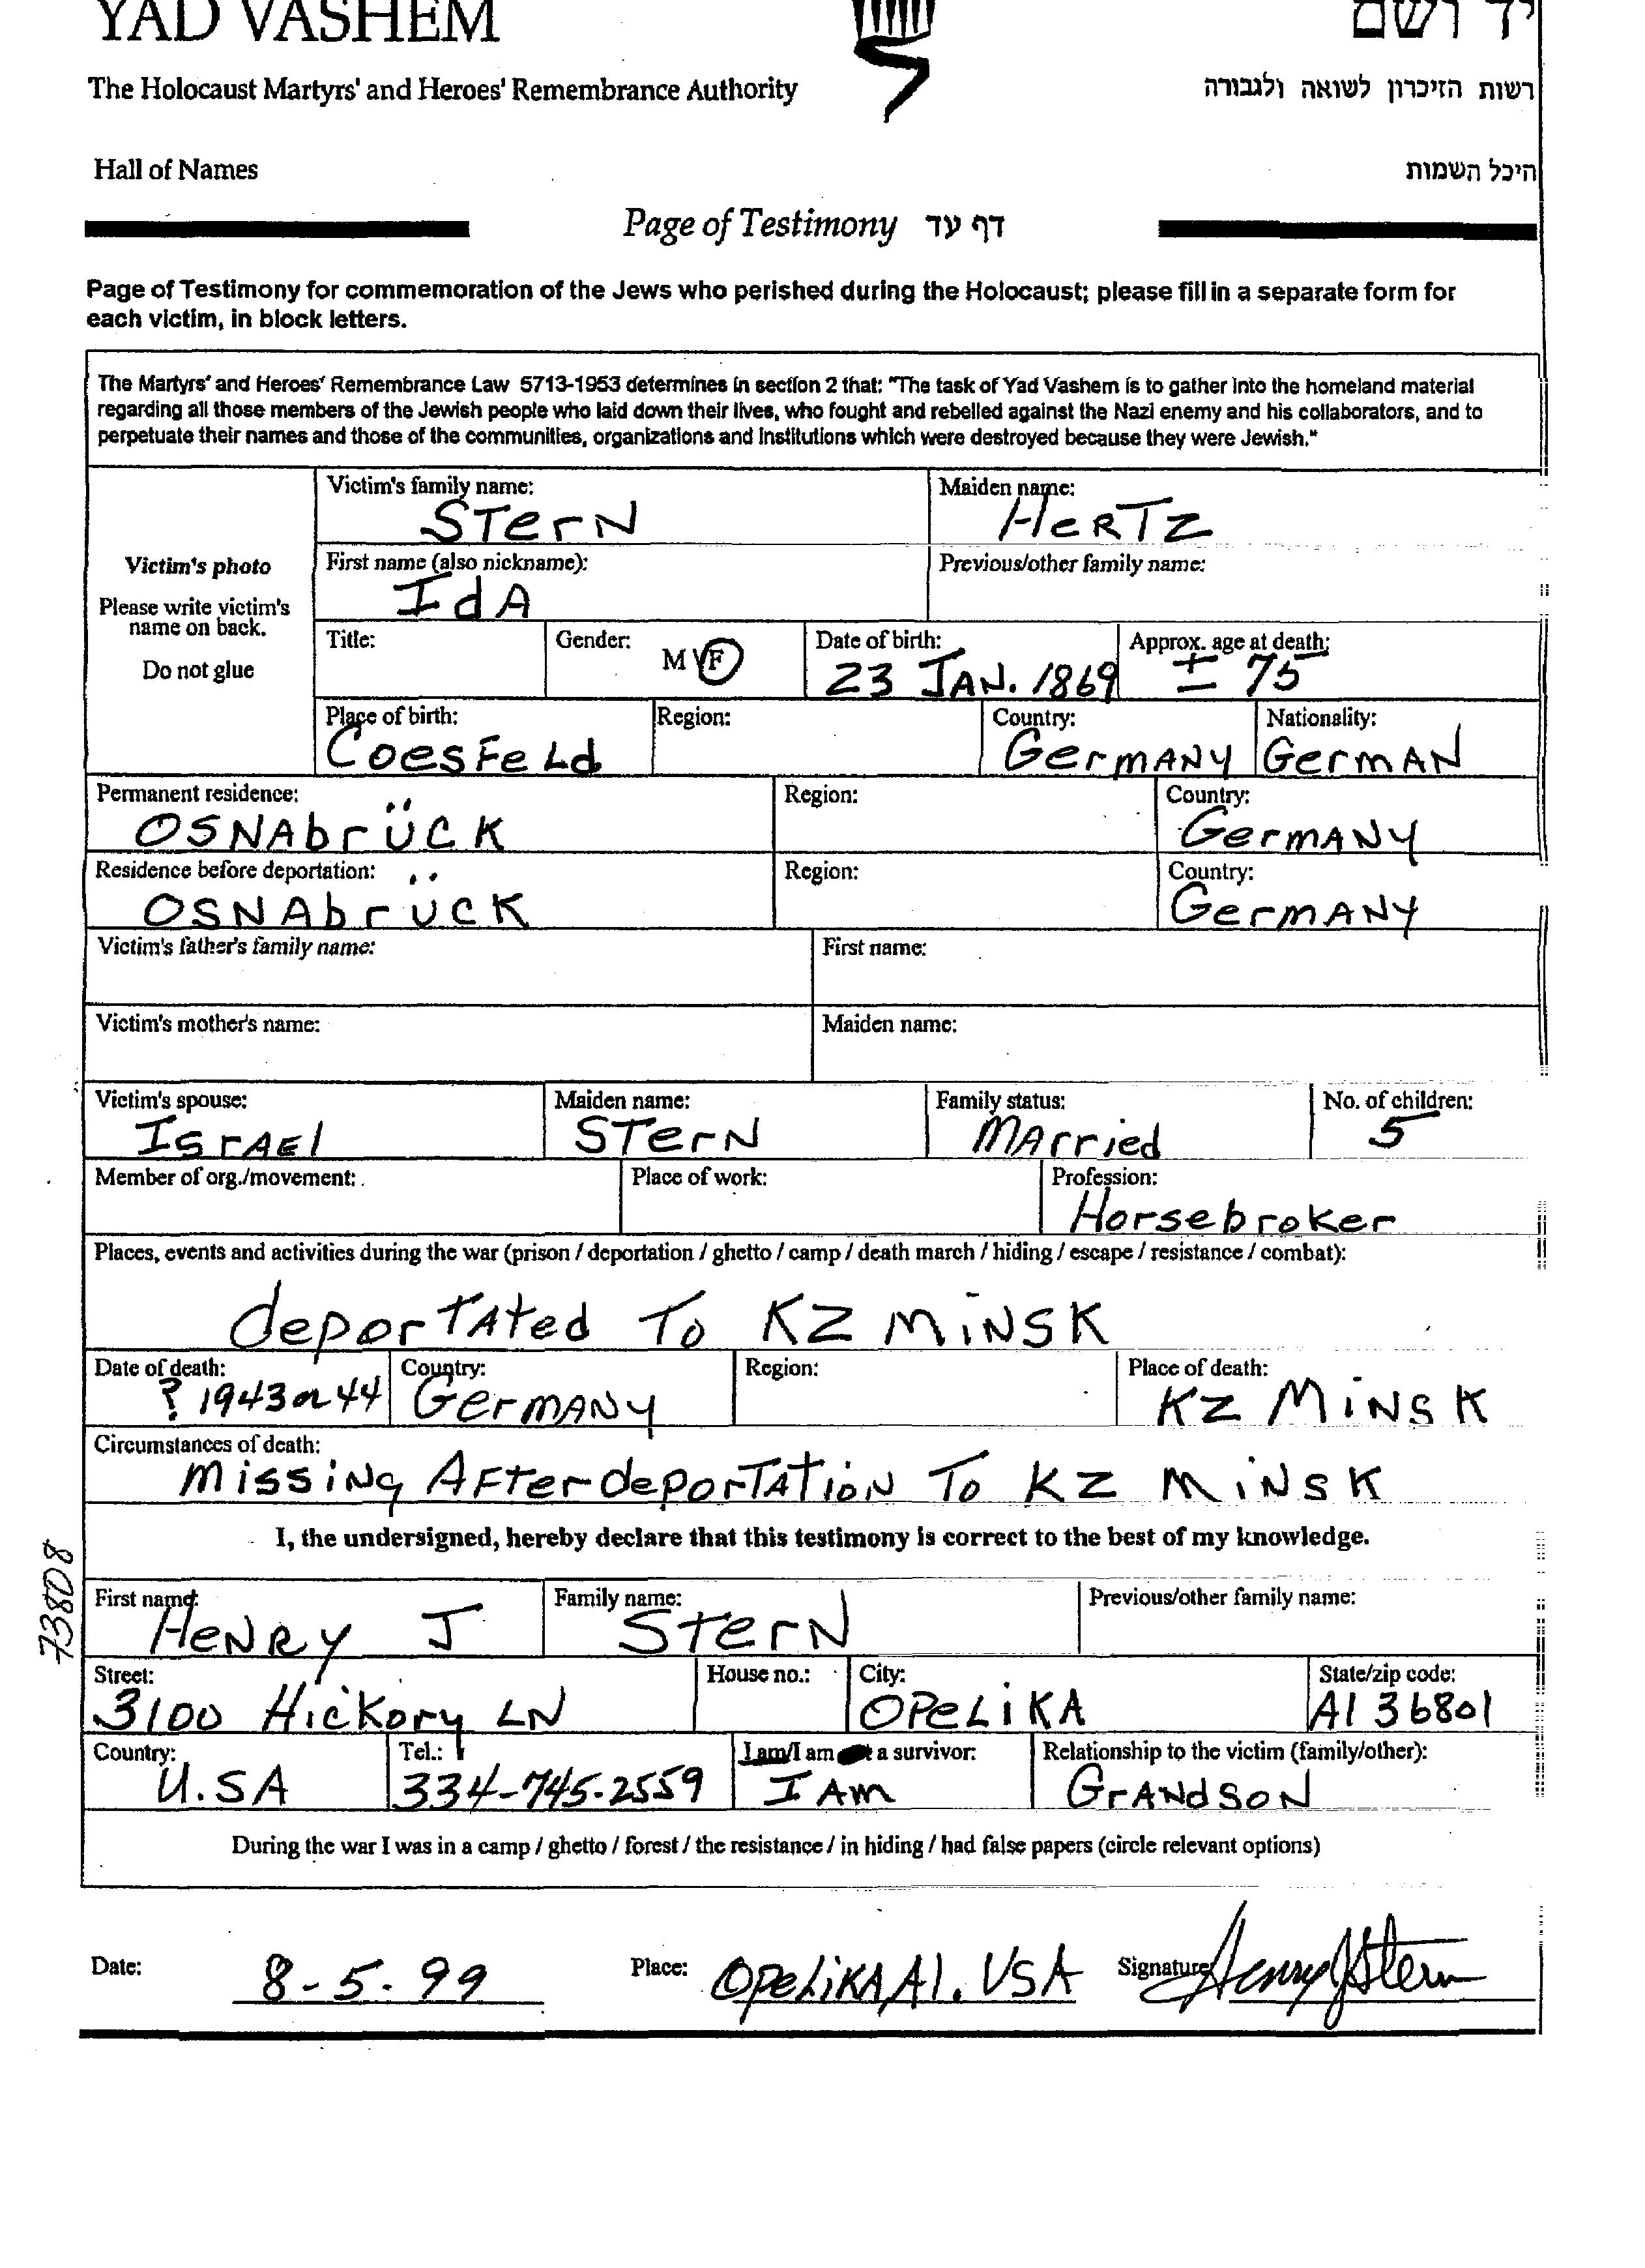 YAD VASHEM יד ושם
The Holocaust Martyrs' and Heroes' Remembrance Authority רשות הזיכרון לשואה ולגבורה
Hall of Names היכל השמות
Page of Testimony דף עד
Page of Testimony for commemoration of the Jews who perished during the Holocaust; please fill in a separate form for
each victim, in block letters.
The Martyrs' and Heroes' Remembrance Law 5713-1953 determines in section 2 that: "The task of Yad Vashem is to gather into the homeland material
regarding all those members of the Jewish people who laid down their lives, who fought and rebelled against the Nazi enemy and his collaborators, and to
perpetuate their names and those of the communities, organizations and institutions which were destroyed because they were Jewish."
Victim's photo
Please write victim's
name on back.
Do not glue
Victim's family name: Maiden name:
STerN HeRTZ
First name (also nickname): Previous/other family name:
IdA
Title: Gender: M / F Date of birth: Approx. age at death:
23 JAN. 1869 ± 75
Place of birth: Region: Country: Nationality:
CoesFeLd GermANY GermAN
Permanent residence: Region: Country:
OSNAbrÜCK GermANY
Residence before deportation: Region: Country:
OSNAbrÜCK GermANY
Victim's father's family name: First name:
Victim's mother's name: Maiden name:
Victim's spouse: Maiden name: Family status: No. of children:
ISrAEl STerN MArried 5
Member of org./movement: Place of work: Profession:
Horsebroker
Places, events and activities during the war (prison / deportation / ghetto / camp / death march / hiding / escape / resistance / combat):
deporTAted To KZ MiNSK
Date of death: Country: Region: Place of death:
? 1943 or 44 GermANY KZ MiNSK
Circumstances of death:
missiNg AFter deporTATioN To KZ MiNSK
I, the undersigned, hereby declare that this testimony is correct to the best of my knowledge.
73808
First name: Family name: Previous/other family name:
HeNRY J STerN
Street: House no.: City: State/zip code:
3100 Hickory LN OPeLiKA Al 36801
Country: Tel.: I am/I am a survivor: Relationship to the victim (family/other):
U.SA 334-745-2559 I Am GrANdSoN
During the war I was in a camp / ghetto / forest / the resistance / in hiding / had false papers (circle relevant options)
Date: 8-5-99 Place: OPeLiKA Al. USA Signature: Henry J Stern